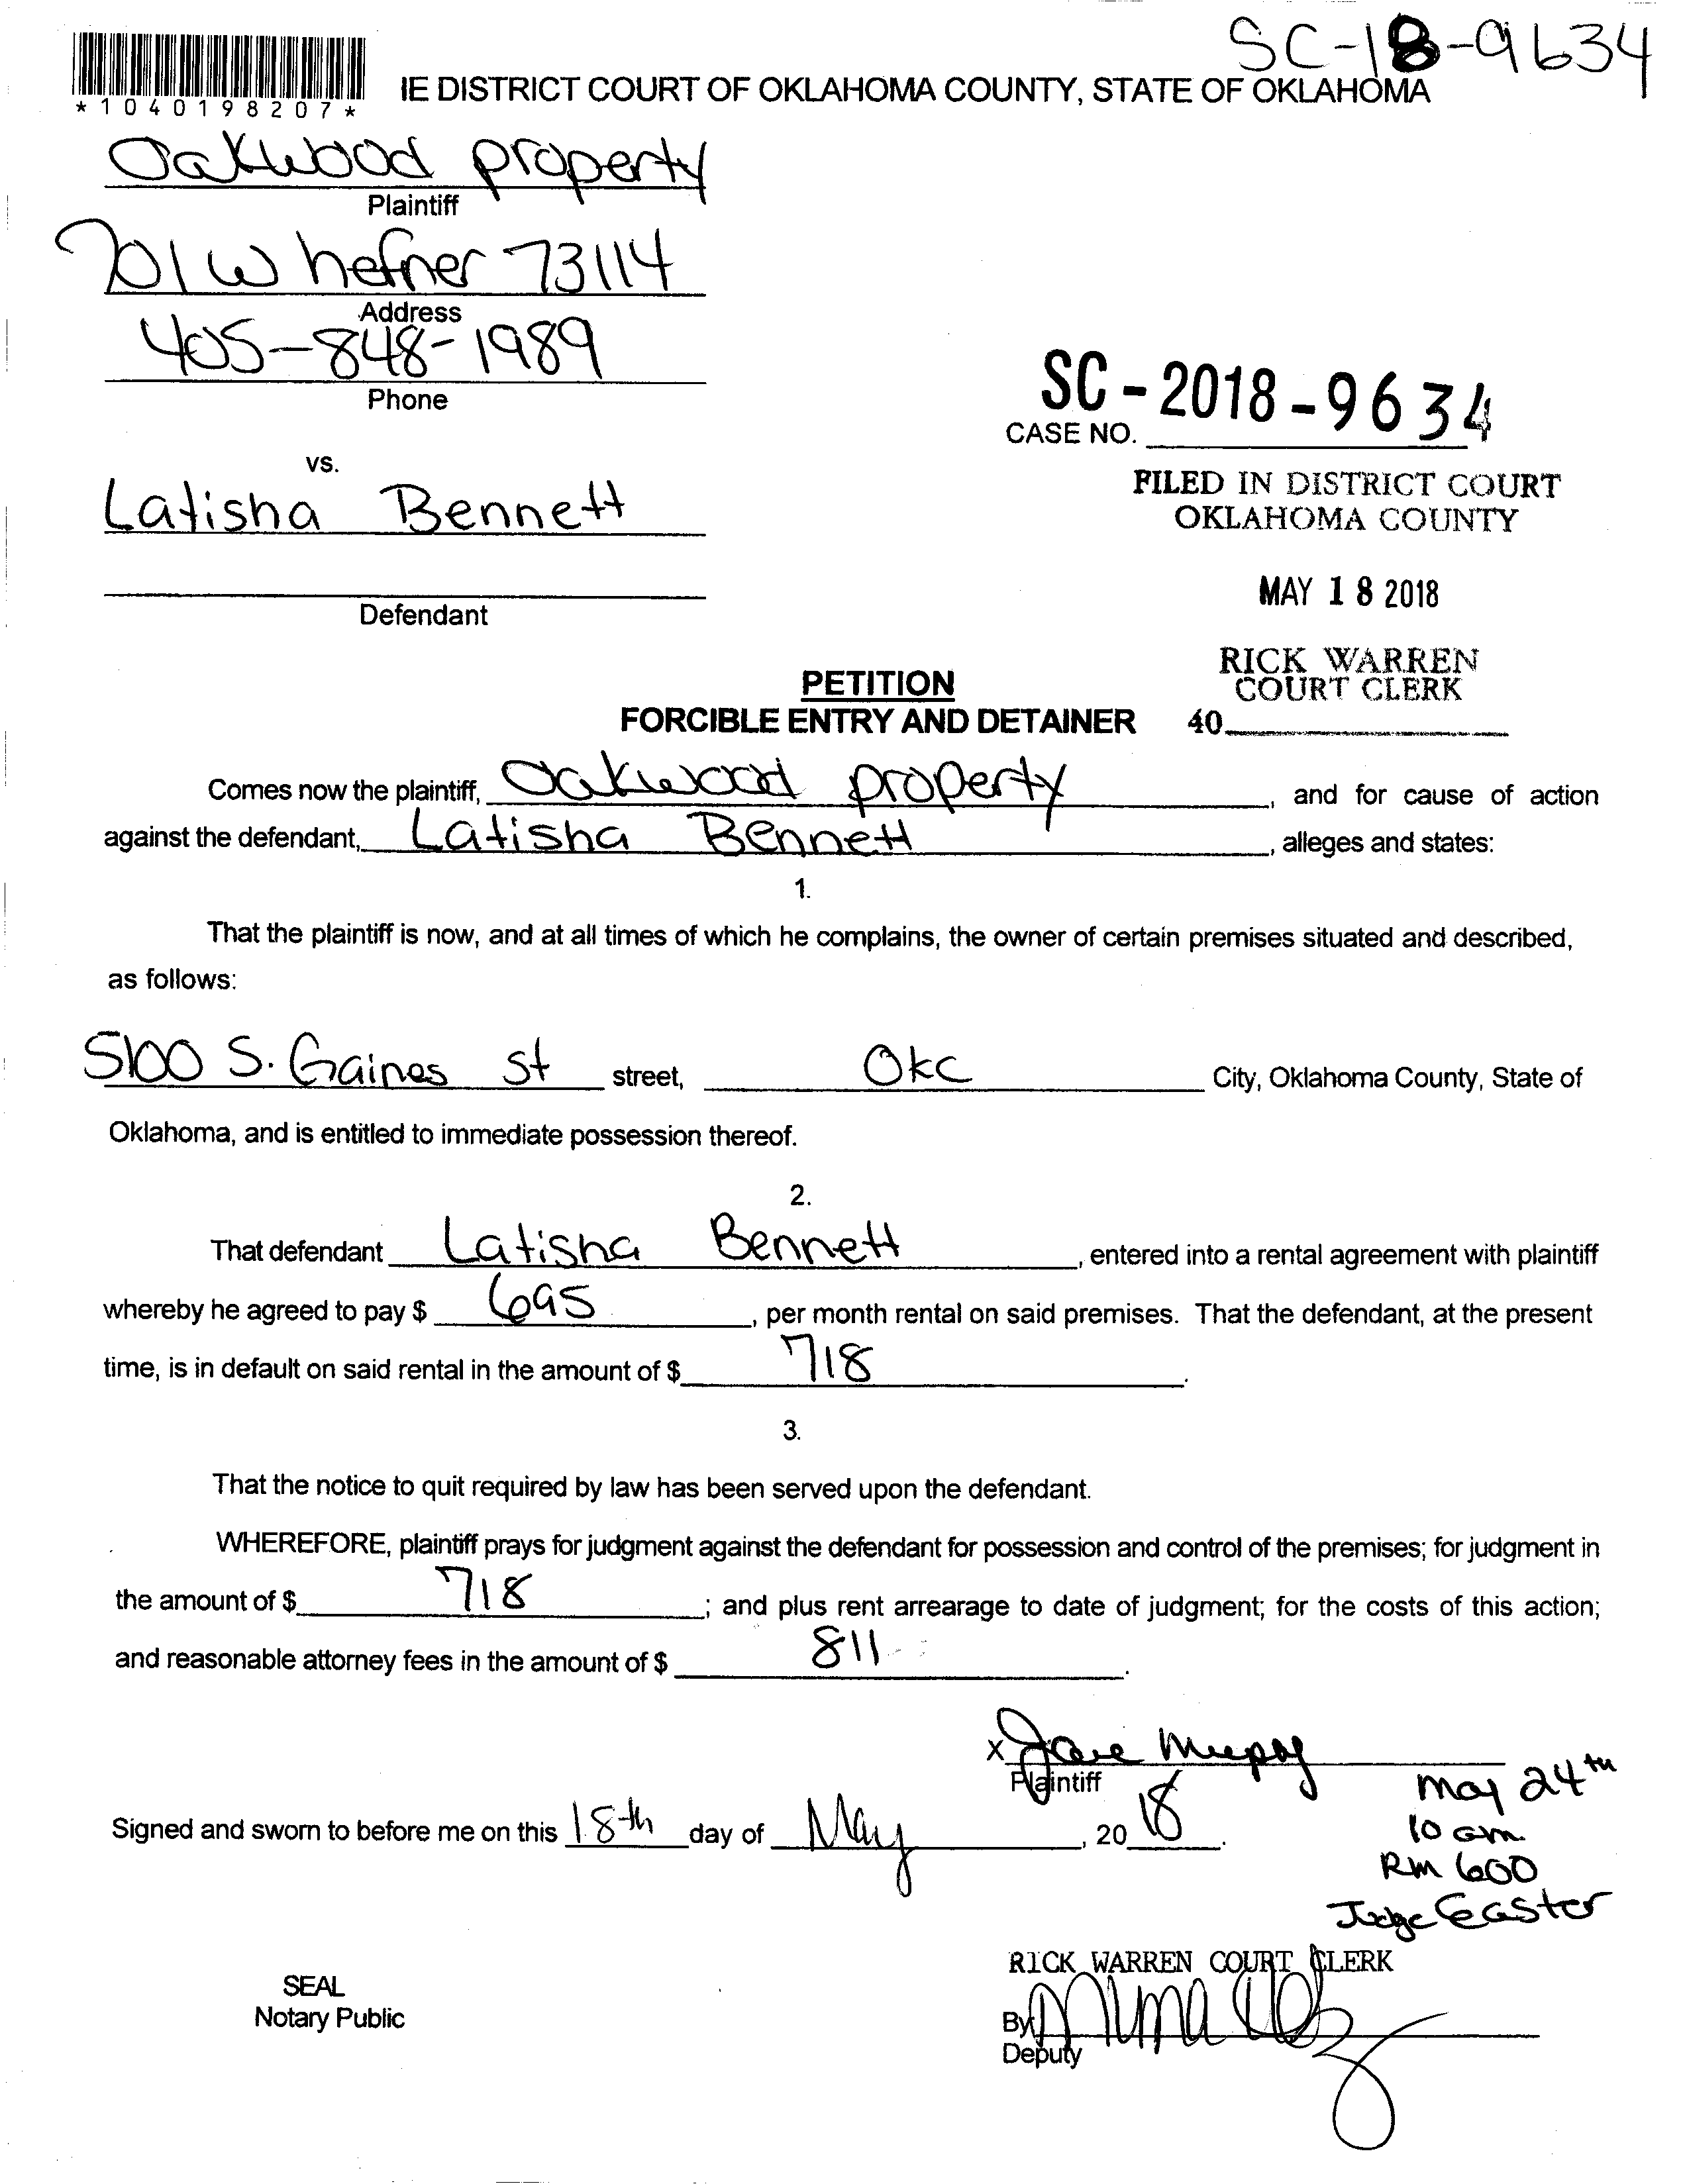 SC-18-9634
*1040198207*
IE DISTRICT COURT OF OKLAHOMA COUNTY, STATE OF OKLAHOMA
Oakwood property
Plaintiff
701 W hefner 73114
Address
405-848-1989
Phone
SC-2018-9634
CASE NO.
vs.
Latisha Bennett
Defendant
FILED IN DISTRICT COURT
OKLAHOMA COUNTY
MAY 18 2018
RICK WARREN
COURT CLERK
40
PETITION
FORCIBLE ENTRY AND DETAINER
Comes now the plaintiff, Oakwood property, and for cause of action
against the defendant, Latisha Bennett, alleges and states:
1.
That the plaintiff is now, and at all times of which he complains, the owner of certain premises situated and described,
as follows:
5100 S. Gaines St street, Okc City, Oklahoma County, State of
Oklahoma, and is entitled to immediate possession thereof.
2.
That defendant Latisha Bennett, entered into a rental agreement with plaintiff
whereby he agreed to pay $ 695, per month rental on said premises. That the defendant, at the present
time, is in default on said rental in the amount of $ 718.
3.
That the notice to quit required by law has been served upon the defendant.
WHEREFORE, plaintiff prays for judgment against the defendant for possession and control of the premises; for judgment in
the amount of $ 718; and plus rent arrearage to date of judgment; for the costs of this action;
and reasonable attorney fees in the amount of $ 811.
X
Plaintiff
Signed and sworn to before me on this 18th day of May, 2018.
May 24th
10 am
Rm 600
Judge Easter
RICK WARREN COURT CLERK
SEAL
Notary Public
By
Deputy